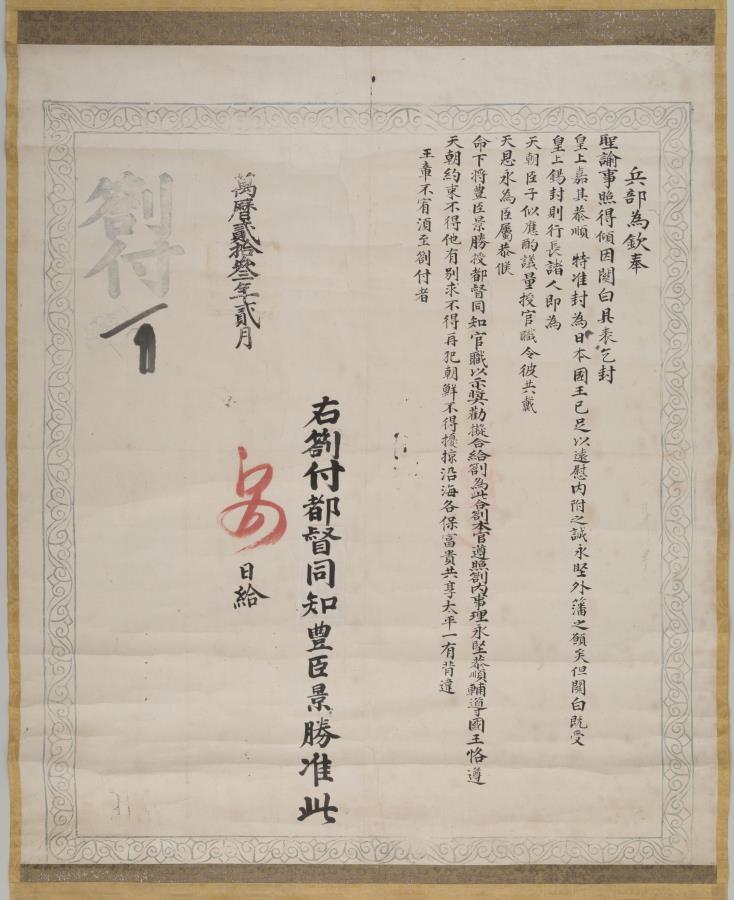 兵部為欽奉
聖諭事照得頃因關白具表乞封
皇上嘉其恭順　特准封為日本國王已足以遠慰內附之誠永堅外藩之願矣但關白既受
皇上錫封則行長諸人即為
天朝臣子似應酌議量授官職令彼共戴
天恩永為臣屬恭候
命下將豊臣景勝授都督同知官職以示奬勸擬合給劄為此合劄本官遵照劄內事理永堅恭順輔導國王恪遵
天朝約束不得他有別求不得再犯朝鮮不得擾掠沿海各保富貴共享太平一有背違
王章不宥須至劄付者
右劄付都督同知豊臣景勝准此
萬曆貳拾叁年貳月
日給
劄付